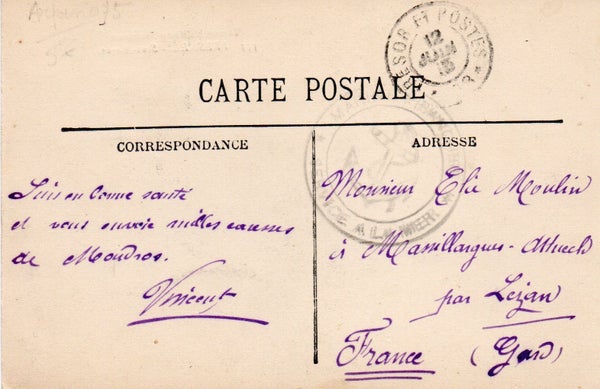 TRESOR ET POSTES
12
JUIN
15
CARTE POSTALE
CORRESPONDANCE
ADRESSE
Suis en bonne santé
et vous envoie milles caresses
de Moudros.
Vincent
Monsieur Elie Moulin
à Massillargues-Attuech
par Lézan
France (Gard)